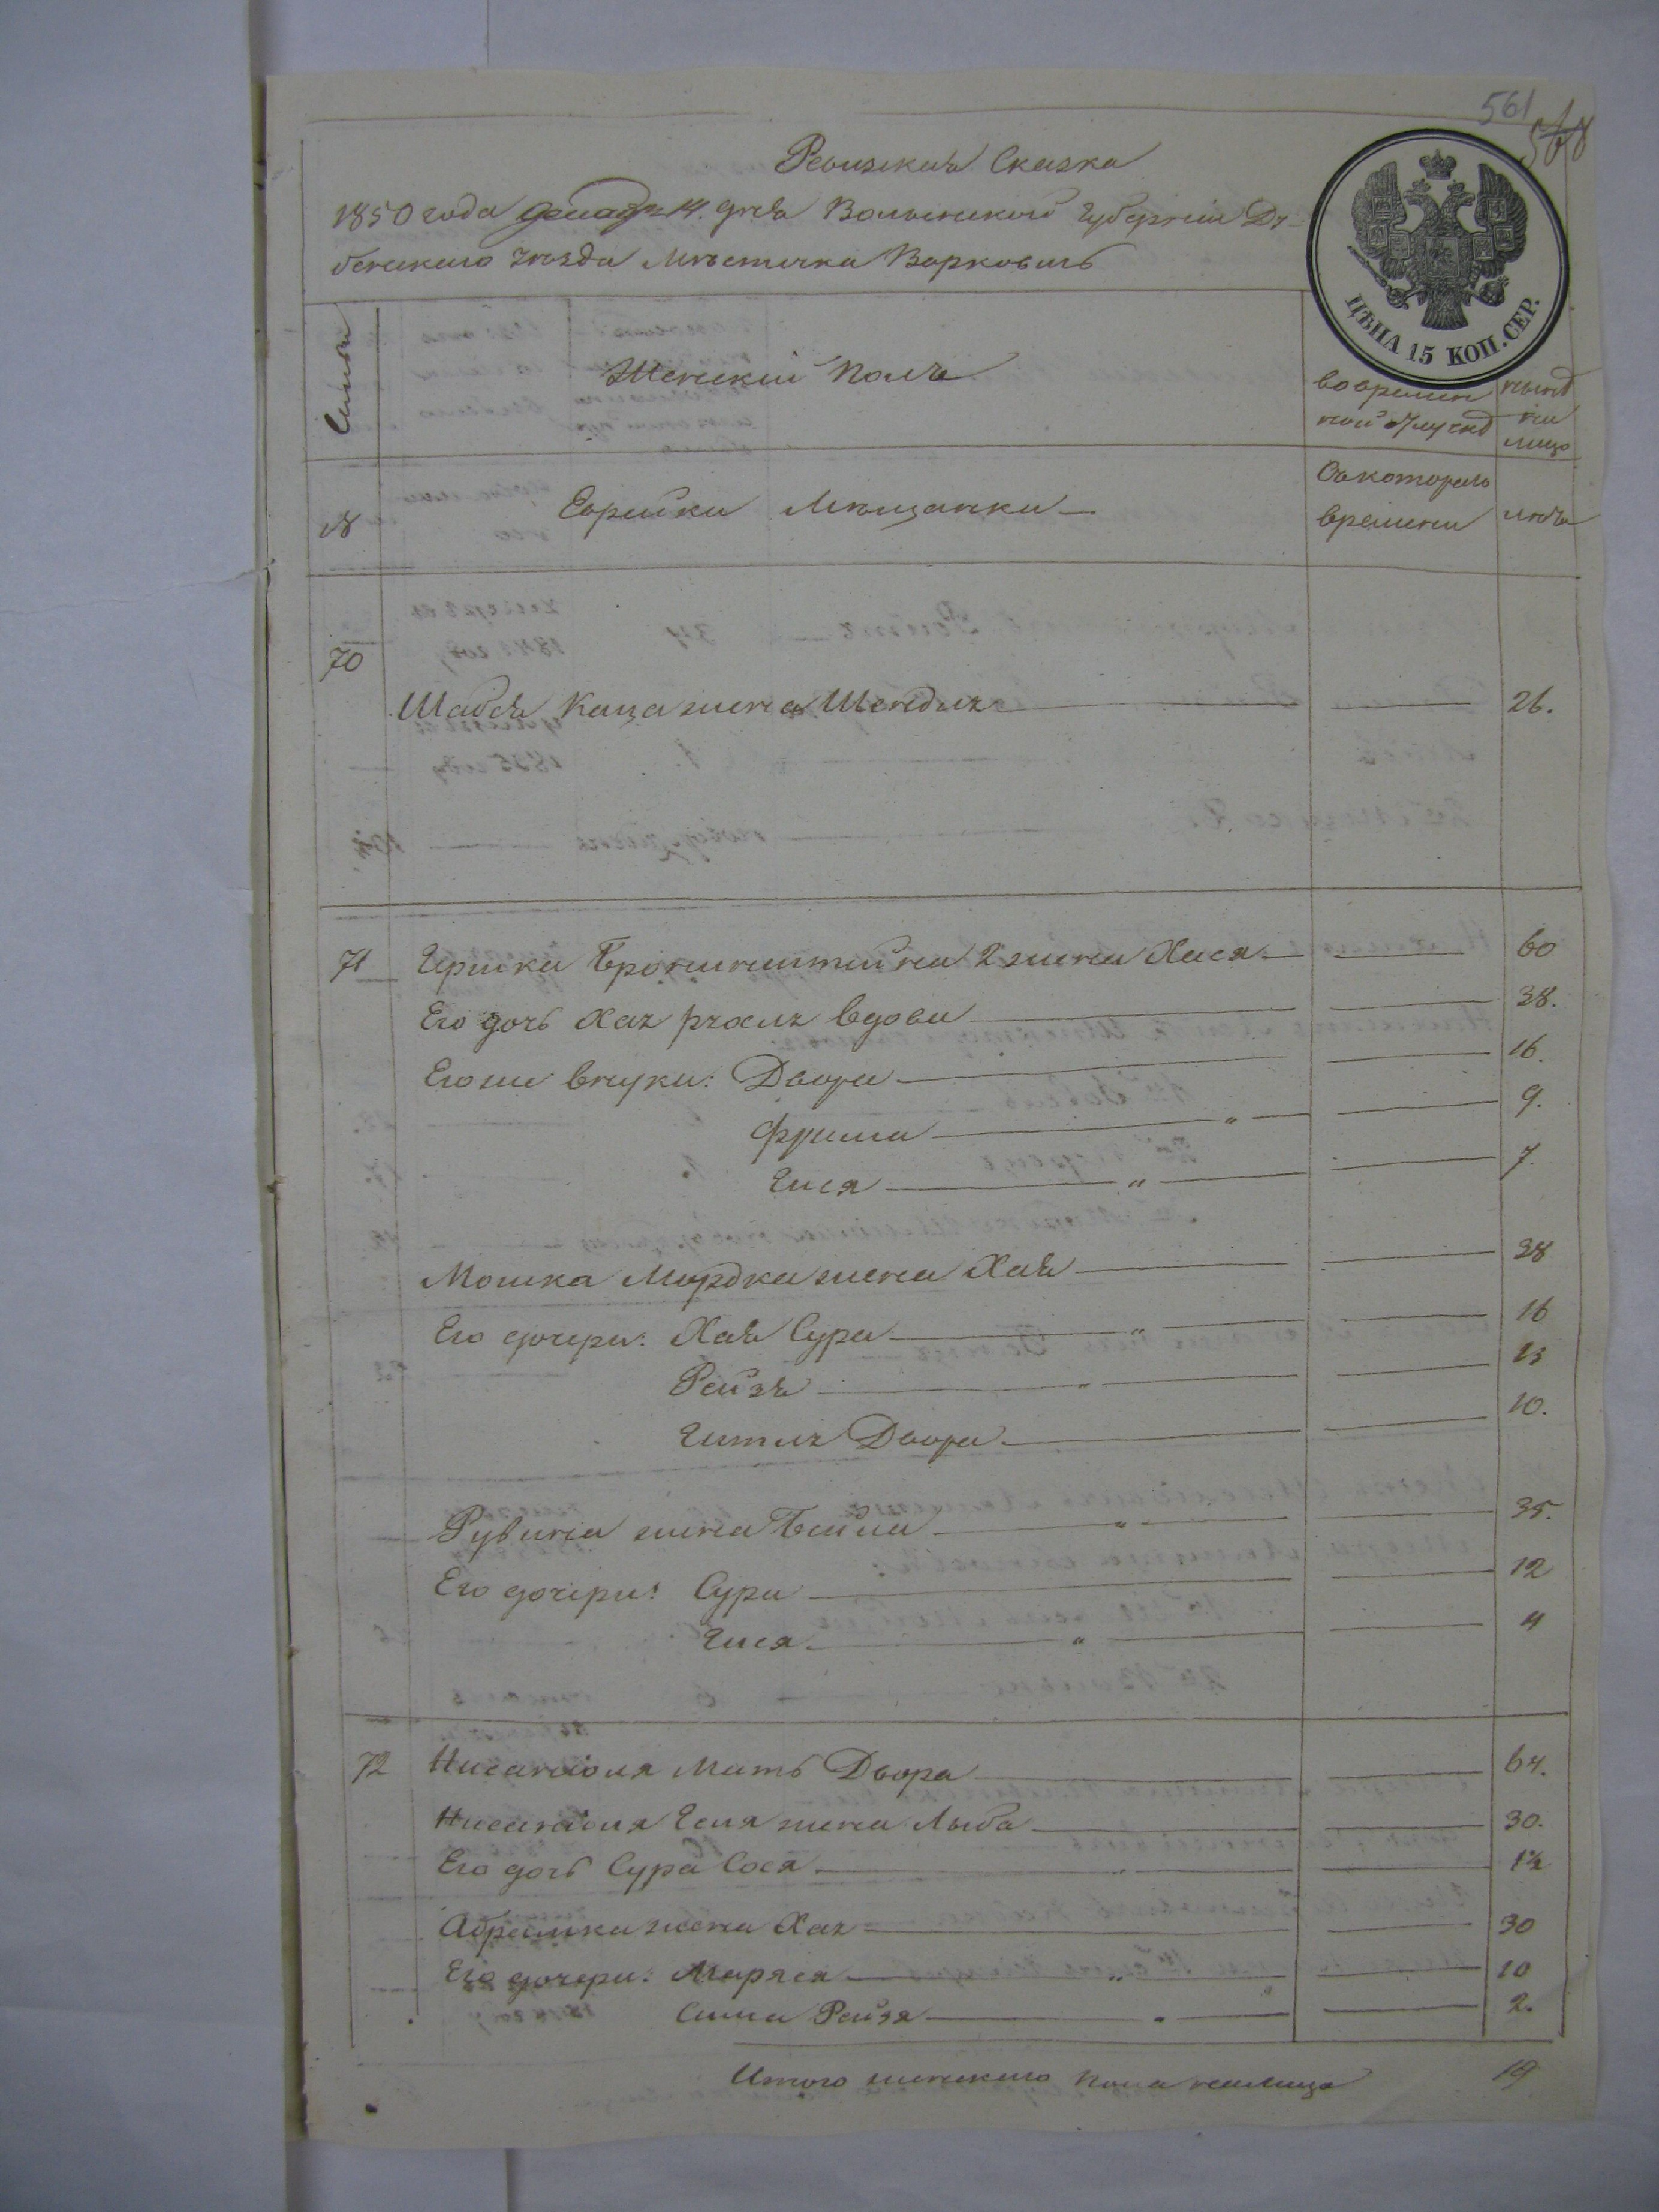 561
568
Ревизская Сказка
1850 года декабря 14. дня Волынской Губернии Ду-
бенскаго уезда Местечка Варковичь
ЦѢНА 15 КОП. СЕР.
Семьи
Женский полъ
во времен
ной отлучкѣ
нынѣ
на
лицо
№
Еврейки Мѣщанки
Съ котораго
времени
лѣта
70
Шабся Каца жена Шендля 26.
71 Гершка Бронштейна 2 жена Хася 60
Его дочь Хая Рухля вдова 38.
Его же внуки: Двора 16.
Фрима " 9.
Гися " 7.
Мошка Мордка жена Хая 38
Его дочери: Хая Сура " 16
Рейзя " 13
Гитля Двора 10.
Рувина жена Бейла " 35.
Его дочери: Сура 12
Гися " 4
72 Нисанзоля Мать Двора 64.
Нисанзоля Геля жена Лыба 30.
Его дочь Сура Сося " 1½
Абрамка жена Хая 30
Его дочери: Маряся " 10
Сима Рейзя " 2.
Итого женскаго пола на лицо 19